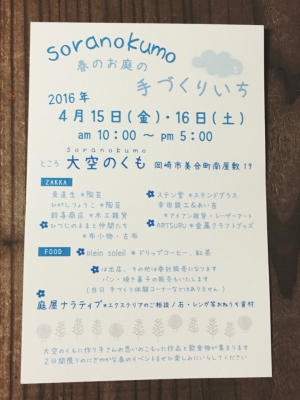 soranokumo
春のお庭の
手づくりいち
2016年
4月15日(金)・16日(土)
am 10:00 ～ pm 5:00
soranokumo
ところ 大空のくも 岡崎市美合町南屋敷19
ZAKKA
*陶芸
ひがしりょうこ *陶芸
*木工雑貨
ひつじのままと仲間たち
*布小物・古布
ステン堂 *ステンドグラス
幸田鉄工&あい吉
*アイアン雑貨・レーザーアート
ARTSURU *金属クラフトグッズ
FOOD
plein soleil *ドリップコーヒー、紅茶
は出店、その他は委託販売になります
パン・焼き菓子の販売もいたします
(当日 手づくり体験コーナーなどはありません)
庭屋ナラティブ *エクステリアのご相談/石・レンガ等おねうち資材
大空のくもに作り手さんの思いのこもった作品と飲食物が集まります
2日間限りのにぎやかな春のイベントをぜひ楽しみにいらしてください